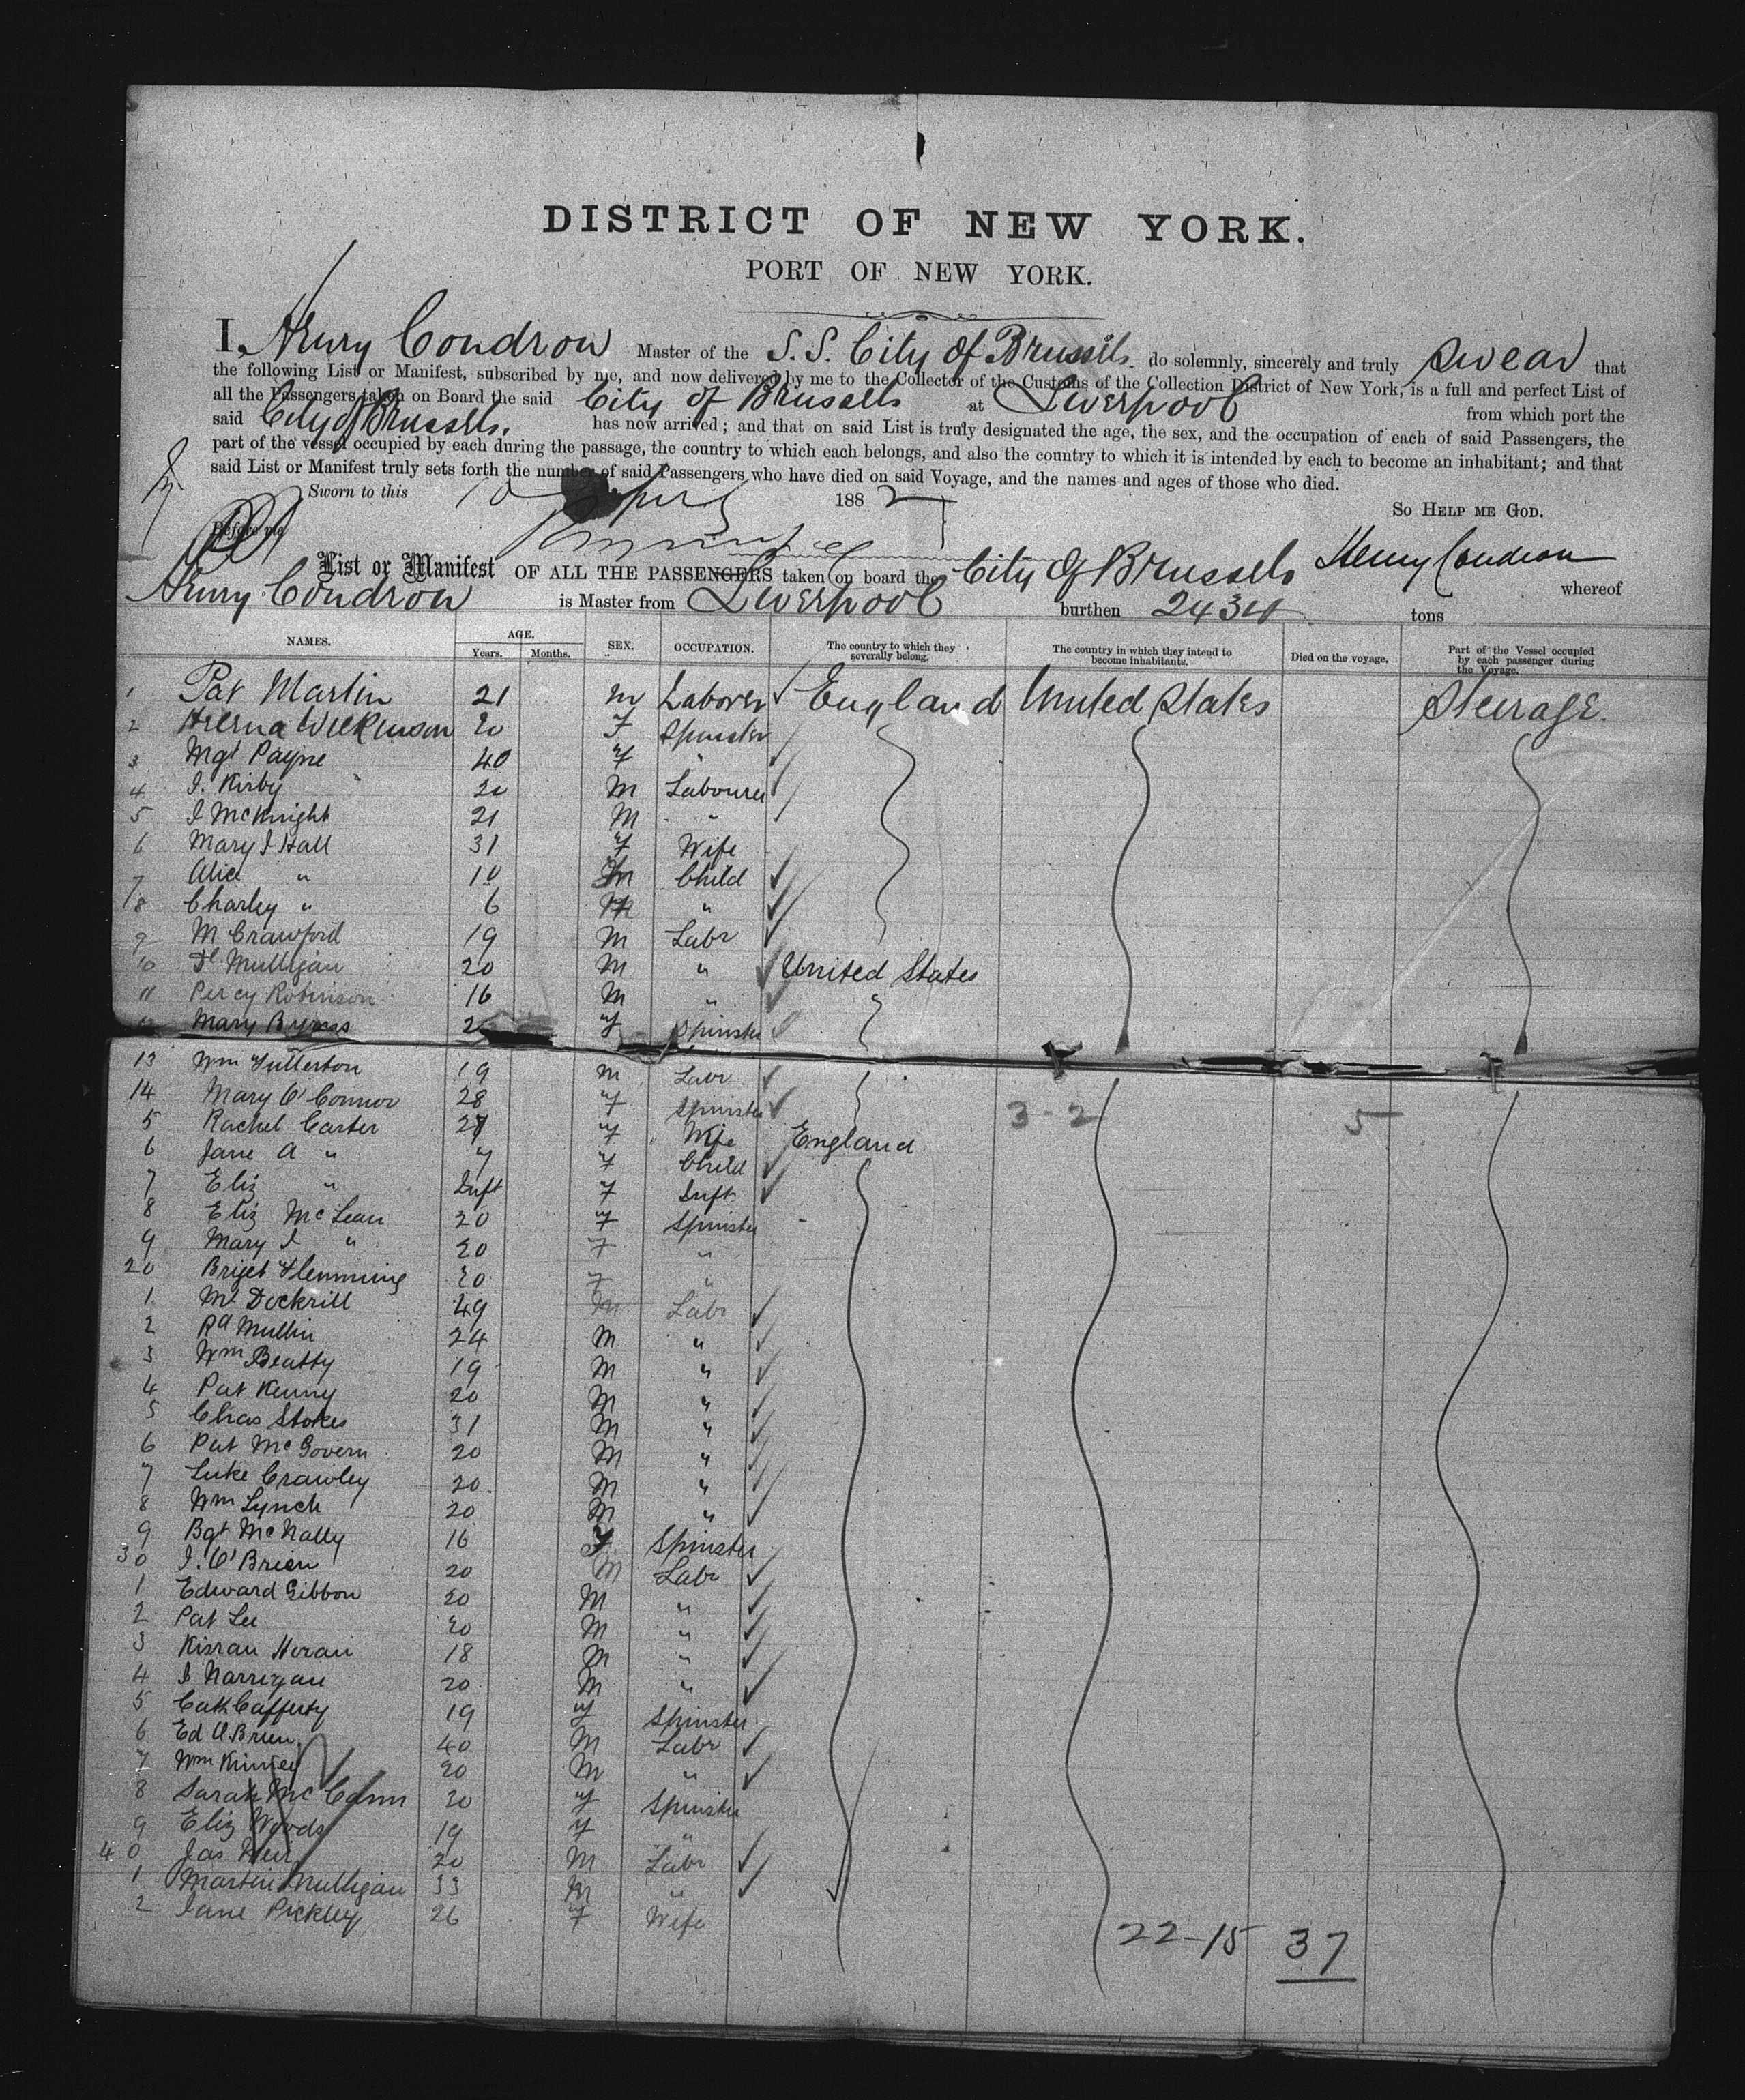 DISTRICT OF NEW YORK.
PORT OF NEW YORK.
I, Henry Condron Master of the S.S. City of Brussels do solemnly, sincerely and truly swear that
the following List or Manifest, subscribed by me, and now delivered by me to the Collector of the Customs of the Collection District of New York, is a full and perfect List of
all the Passengers taken on Board the said City of Brussels at Liverpool from which port the
said City of Brussels. has now arrived; and that on said List is truly designated the age, the sex, and the occupation of each of said Passengers, the
part of the vessel occupied by each during the passage, the country to which each belongs, and also the country to which it is intended by each to become an inhabitant; and that
said List or Manifest truly sets forth the number of said Passengers who have died on said Voyage, and the names and ages of those who died.
Sworn to this 10 1882
So HELP ME GOD.
Before me
Henry Condron
List or Manifest OF ALL THE PASSENGERS taken on board the City of Brussels whereof
Henry Condron is Master from Liverpool burthen 2434 tons
NAMES. AGE. Years. Months. SEX. OCCUPATION. The country to which they severally belong. The country in which they intend to become inhabitants. Died on the voyage. Part of the Vessel occupied by each passenger during the Voyage.
1 Pat Martin 21 m Laborer England United States Steerage.
2 Wilkinson 20 F Spinster
3 Mgt Payne 40 f "
4 J. Kirby 20 M Labourer
5 J McKnight 21 M "
6 Mary J Hall 31 f Wife
7 Alice " 10 Child
8 Charley " 6 "
9 M Crawford 19 M Labr
10 Mulligan 20 M " United States
11 Percy Robinson 16 M "
12 Mary Byrnes 2 f Spinster
13 Wm Fullerton 19 m Labr
14 Mary O'Connor 28 f Spinster 3-2 5
5 Rachel Carter 27 f Wife England
6 Jane A " 7 f Child
7 Eliz " Inft f Inft
8 Eliz McLean 20 f Spinster
9 Mary J " 20 f "
20 Briget Flemming 20 f "
1 Ml Dockrill 49 m Labr
2 Rd Mullin 24 M "
3 Wm Beatty 19 M "
4 Pat Kenny 20 M "
5 Chas Stokes 31 M "
6 Pat McGovern 20 M "
7 Luke Crawley 20 M "
8 Wm Lynch 20 M "
9 Bgt McNally 16 f Spinster
30 J. O'Brien 20 M Labr
1 Edward Gibbon 20 M "
2 Pat Lee 20 M "
3 Kieran Horan 18 M "
4 J Harrigan 20 M "
5 Cath Cafferty 19 f Spinster
6 Ed O'Brien 40 M Labr
7 Wm Kinney 20 M "
8 Sarah McCann 20 f Spinster
9 Eliz Woods 19 f "
40 Jas Weir 20 M Labr
1 Martin Mulligan 33 M "
2 Jane Pickley 26 f Wife
22-15 37